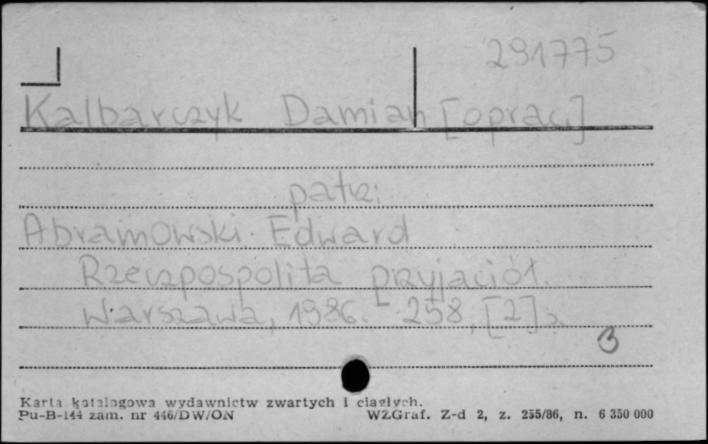 291775
Kalbarczyk Damian [oprac.]
patrz:
Abramowski Edward
Rzeczpospolita przyjaciół.
Warszawa, 1986. 258, [2] s.
B
Karta katalogowa wydawnictw zwartych i ciągłych.
Pu-B-144 zam. nr 446/DW/ON WZGraf. Z-d 2, z. 255/86, n. 6 350 000